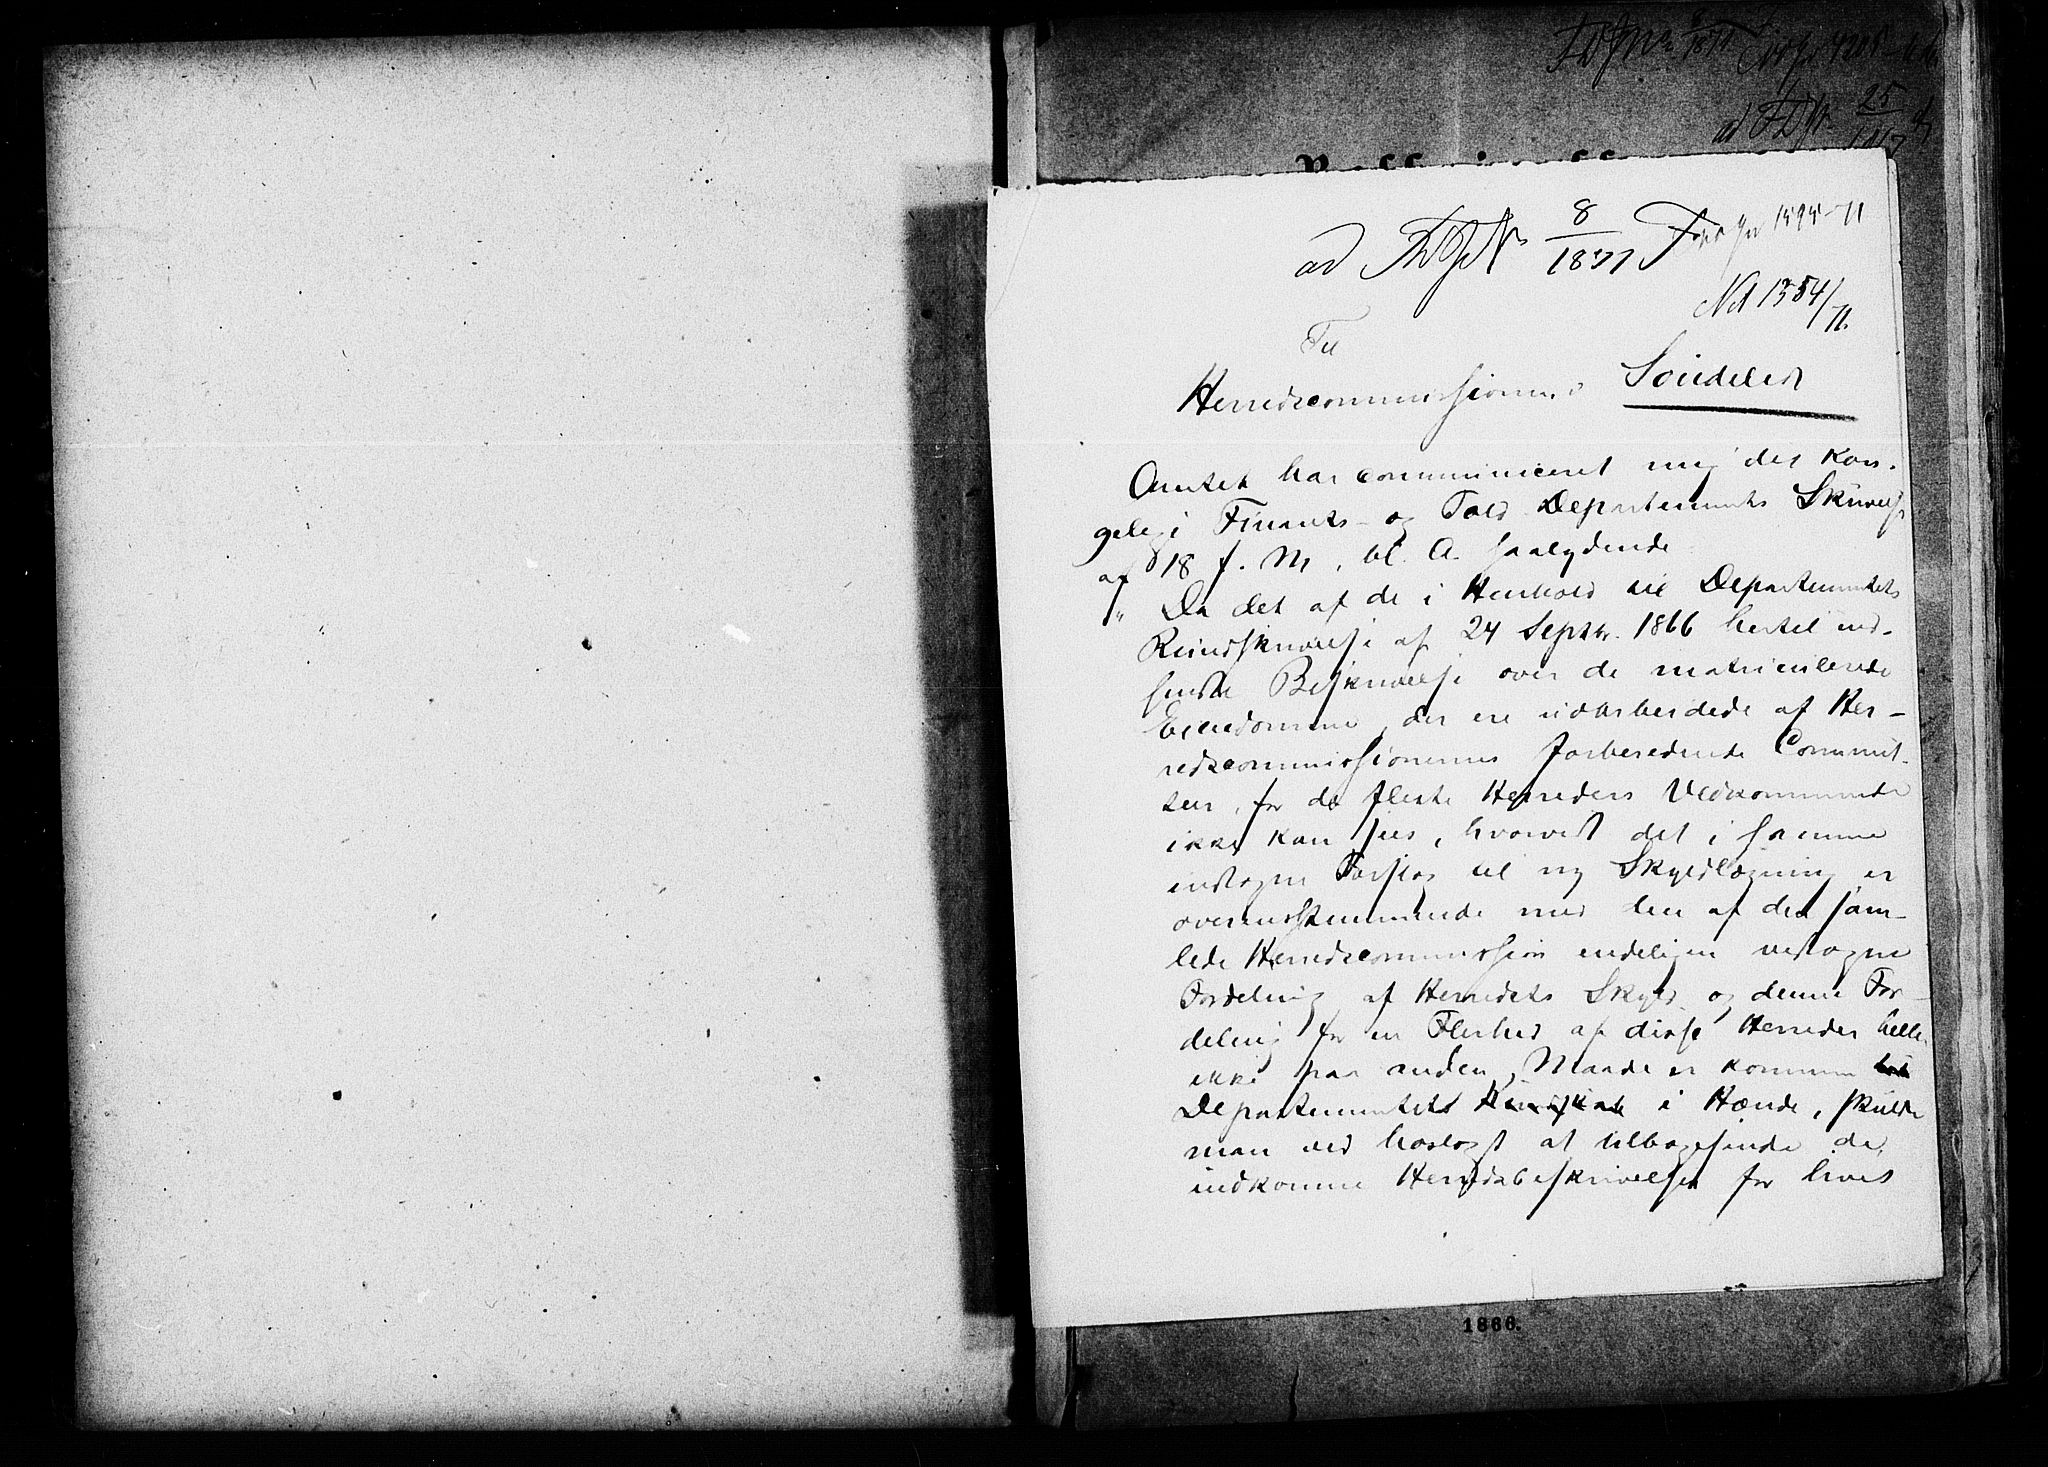 25
ad
8
1871
No 1354/71.
Til
Herredscommissionen i Söndeled
Amtet har communiceret mig det Kon-
gelige Finants- og Told Departements Skrivelse
af 18 f. M., bl. A. saalydende
"Da det af de i Henhold til Departementets
Rundskrivelse af 24 Septbr. 1866 hertil ind-
sendte Beskrivelse over de matriculerede
Eiendomme, der ere udarbeidede af Her-
redscommissionernes forberedende Commit-
teer, for de fleste Herreders Vedkommende
ikke kan sees, hvorvidt det i samme
indtagne Forslag til ny Skyldlægning er
overensstemmende med den af den sam-
lede Herredscommission endeligen vedtagne
Fordeling af Herredets Skyld, og denne For-
deling for en Flerhed af disse Herreder heller
ikke paa anden Maade er kommen
Departementet i Hænde, skulde
man ved hoslagt at tilbagesende de
indkomne Herredsbeskrivelser for hvert
1866.